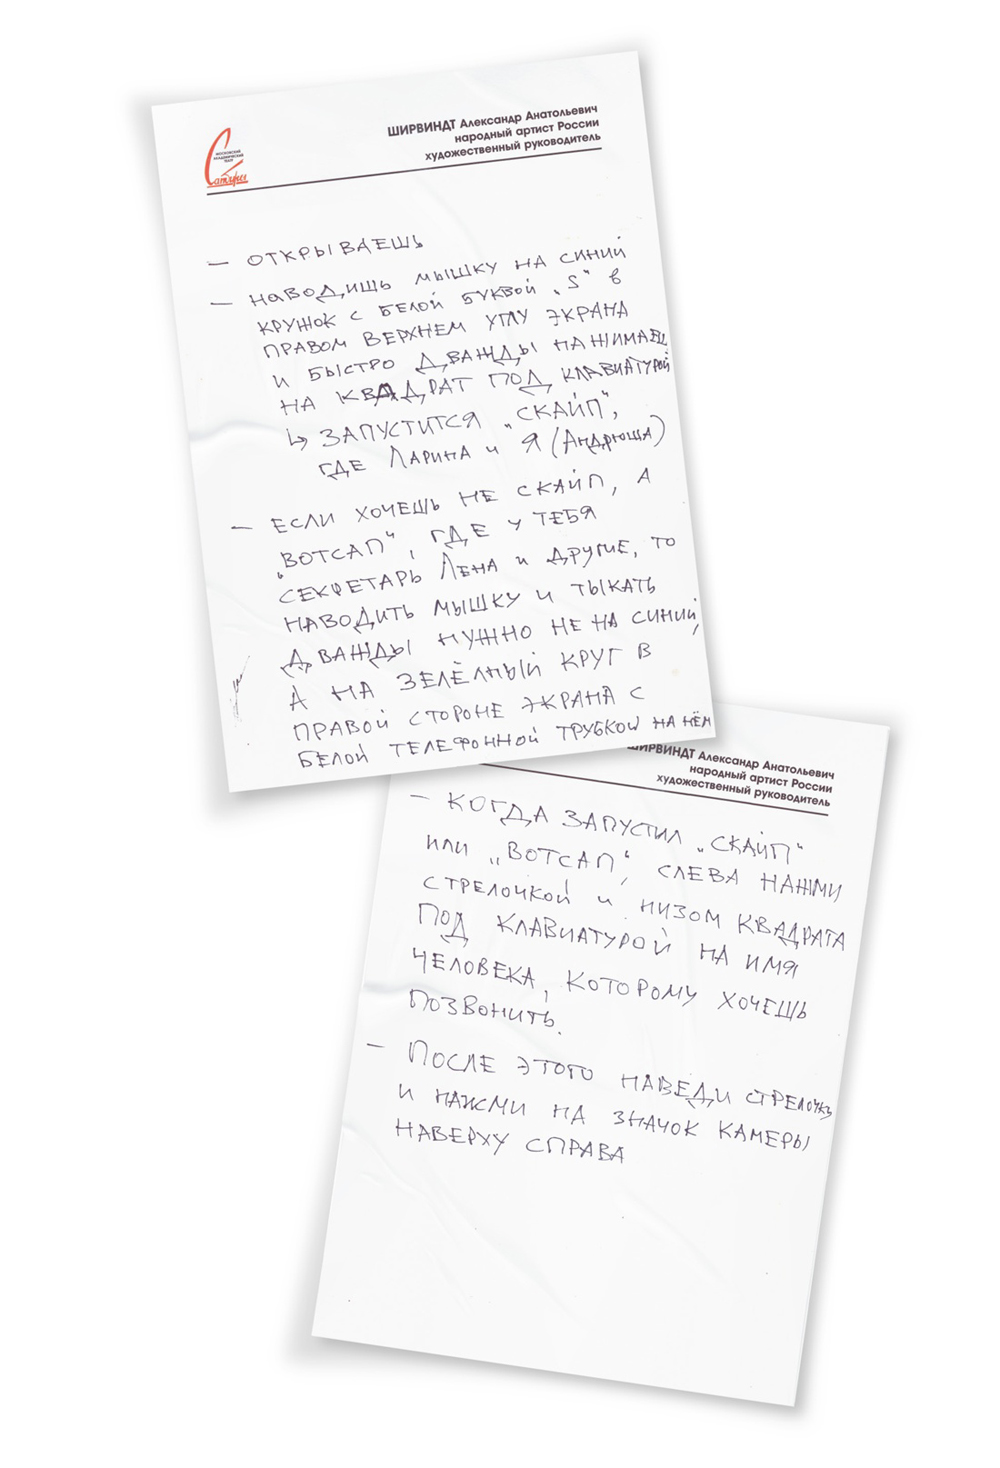 ШИРВИНДТ Александр Анатольевич
народный артист России
художественный руководитель
МОСКОВСКИЙ
АКАДЕМИЧЕСКИЙ
ТЕАТР
Сатиры
— ОТКРЫВАЕШЬ
— НАВОДИШЬ МЫШКУ НА СИНИЙ
КРУЖОК С БЕЛОЙ БУКВОЙ „S“ В
ПРАВОМ ВЕРХНЕМ УГЛУ ЭКРАНА
И БЫСТРО ДВАЖДЫ НАЖИМАЕШЬ
НА КВАДРАТ ПОД КЛАВИАТУРОЙ
↳ ЗАПУСТИТСЯ „СКАЙП“,
ГДЕ ЛАРИНА И Я (АНДРЮША)
— ЕСЛИ ХОЧЕШЬ НЕ СКАЙП, А
„ВОТСАП“, ГДЕ У ТЕБЯ
СЕКРЕТАРЬ ЛЕНА И ДРУГИЕ, ТО
НАВОДИТЬ МЫШКУ И ТЫКАТЬ
ДВАЖДЫ НУЖНО НЕ НА СИНИЙ,
А НА ЗЕЛЁЛНЫЙ КРУГ В
ПРАВОЙ СТОРОНЕ ЭКРАНА С
БЕЛОЙ ТЕЛЕФОННОЙ ТРУБКОЙ НА НЁМ
ШИРВИНДТ Александр Анатольевич
народный артист России
художественный руководитель
— КОГДА ЗАПУСТИЛ „СКАЙП“
ИЛИ „ВОТСАП“, СЛЕВА НАЖМИ
СТРЕЛОЧКОЙ И НИЗОМ КВАДРАТА
ПОД КЛАВИАТУРОЙ НА ИМЯ
ЧЕЛОВЕКА, КОТОРОМУ ХОЧЕШЬ
ПОЗВОНИТЬ.
— ПОСЛЕ ЭТОГО НАВЕДИ СТРЕЛОЧКУ
И НАЖМИ НА ЗНАЧОК КАМЕРЫ
НАВЕРХУ СПРАВА